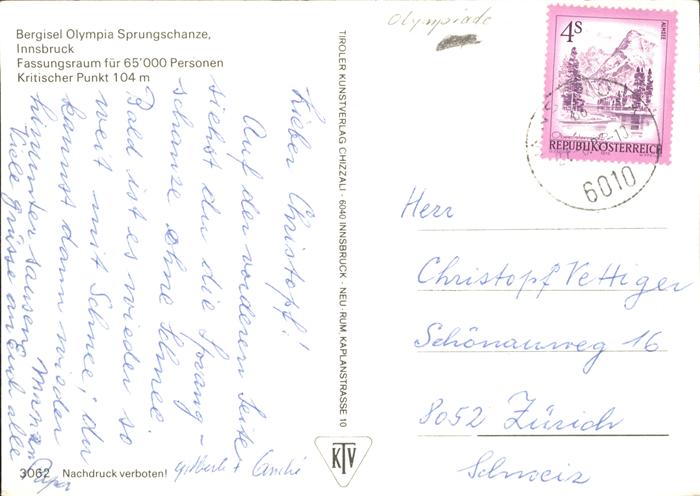 Bergisel Olympia Sprungschanze,
Innsbruck
Fassungsraum für 65'000 Personen
Kritischer Punkt 104 m
Olympiade
4S
ALMSEE
REPUBLIK ÖSTERREICH
6010
TIROLER KUNSTVERLAG CHIZZALI · 6040 INNSBRUCK - NEU - RUM, KAPLANSTRASSE 10
Lieber Christopf!
Auf der vorderen Seite
siehst du die Sprung-
schanze ohne Schnee.
Bald ist es wieder so
weit mit Schnee; du
kannst dann wieder
hinunter sausen. Maman
Viele grüsse an Euch alle
Papa
Herr
Christopf Vettiger
Schönauweg 16
8052 Zürich
Schweiz
3062 Nachdruck verboten!
KTV